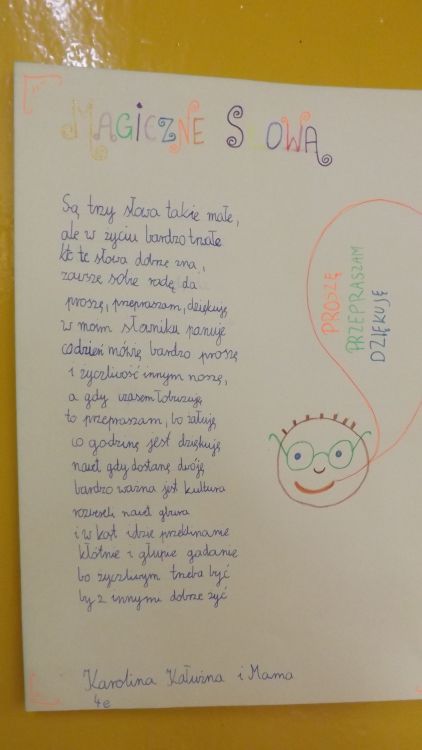 MAGICZNE SŁOWA
Są trzy słowa takie małe,
ale w życiu bardzo trwałe
kto te słowa dobrze zna,
zawsze sobie radę da
proszę, przepraszam, dziękuję
w moim słowniku panuje
codzień mówię bardzo proszę
i życzliwość innym noszę,
a gdy czasem łobuzuję
to przepraszam, bo żałuję
co godzinę jest dziękuję
nawet gdy dostanę dwóję
bardzo ważna jest kultura
rozweseli nawet gbura
i w kąt idzie przeklinanie
kłótnie i głupie gadanie
bo życzliwym trzeba być
by z innymi dobrze żyć
Karolina Kałużna i Mama
4e
PROSZĘ
PRZEPRASZAM
DZIĘKUJĘ